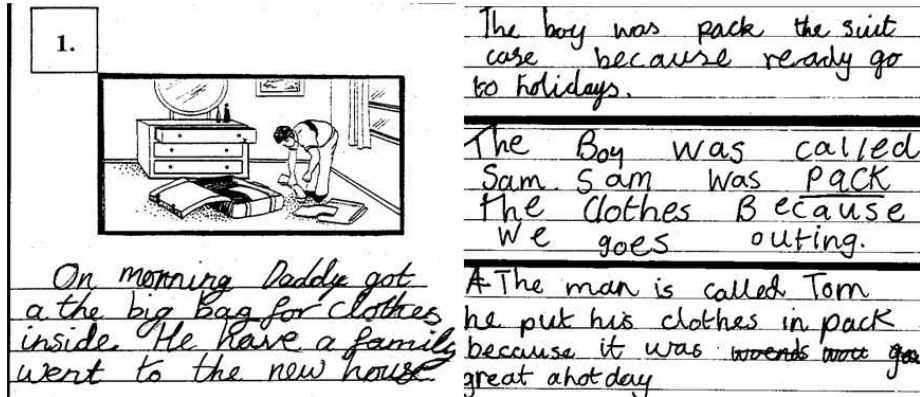 1.
On morning Daddy got
a the big bag for clothes
inside. He have a family
went to the new house
The boy was pack the suit
case because ready go
to holidays.
The Boy was called
Sam. Sam was pack
the clothes Because
we goes outing.
A The man is called Tom
he put his clothes in pack
because it was
great a hot day